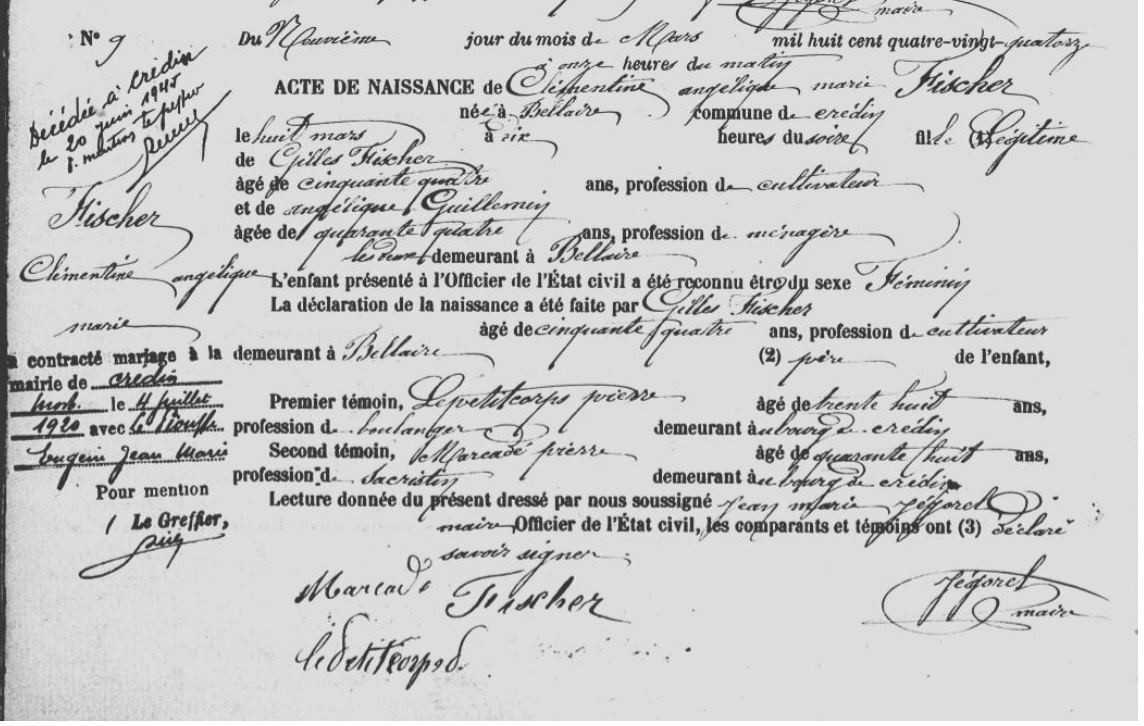 maire
N° 9
Du Neuvième jour du mois de Mars mil huit cent quatre-vingt-quatorze
à onze heures du matin
ACTE DE NAISSANCE de Clémentine angélique marie Fischer
née à Bellaire commune de crédin
le huit mars à six heures du soir fille (1) Légitime
de Gilles Fischer
âgé de cinquante quatre ans, profession de cultivateur
et de angélique Guillemin
âgée de quarante quatre ans, profession de ménagère
les deux demeurant à Bellaire
L'enfant présenté à l'Officier de l'État civil a été reconnu être du sexe Féminin
La déclaration de la naissance a été faite par Gilles Fischer
âgé de cinquante quatre ans, profession de cultivateur
demeurant à Bellaire (2) père de l'enfant,
Premier témoin, Lepetitcorps pierre âgé de trente huit ans,
profession de boulanger demeurant au bourg de crédin
Second témoin, Marcadé pierre âgé de quarante huit ans,
profession de sacristin demeurant au bourg de crédin
Lecture donnée du présent dressé par nous soussigné Jean marie Jégorel
maire, Officier de l'État civil, les comparants et témoins ont (3) déclaré
savoir signer
Marcadé
Fischer
Jégorel
maire
lepetitcorps
Décédée à Crédin
le 20 juin 1945
Fischer
Clémentine angélique
marie
a contracté mariage à la
mairie de credin
Morb. le 4 juillet
1920 avec le
Eugène Jean Marie
Pour mention
Le Greffier,